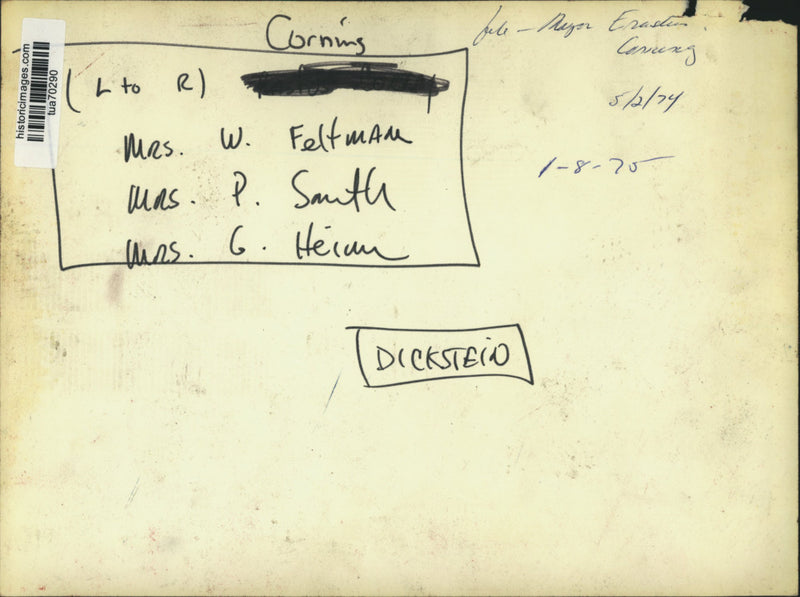 Corning
file - Mayor Erastus
Corning
(L to R)
5/2/74
Mrs. W. Feltman
1-8-75
Mrs. P. Smith
Mrs. G. Heim
DICKSTEIN
historicimages.com
tua70290